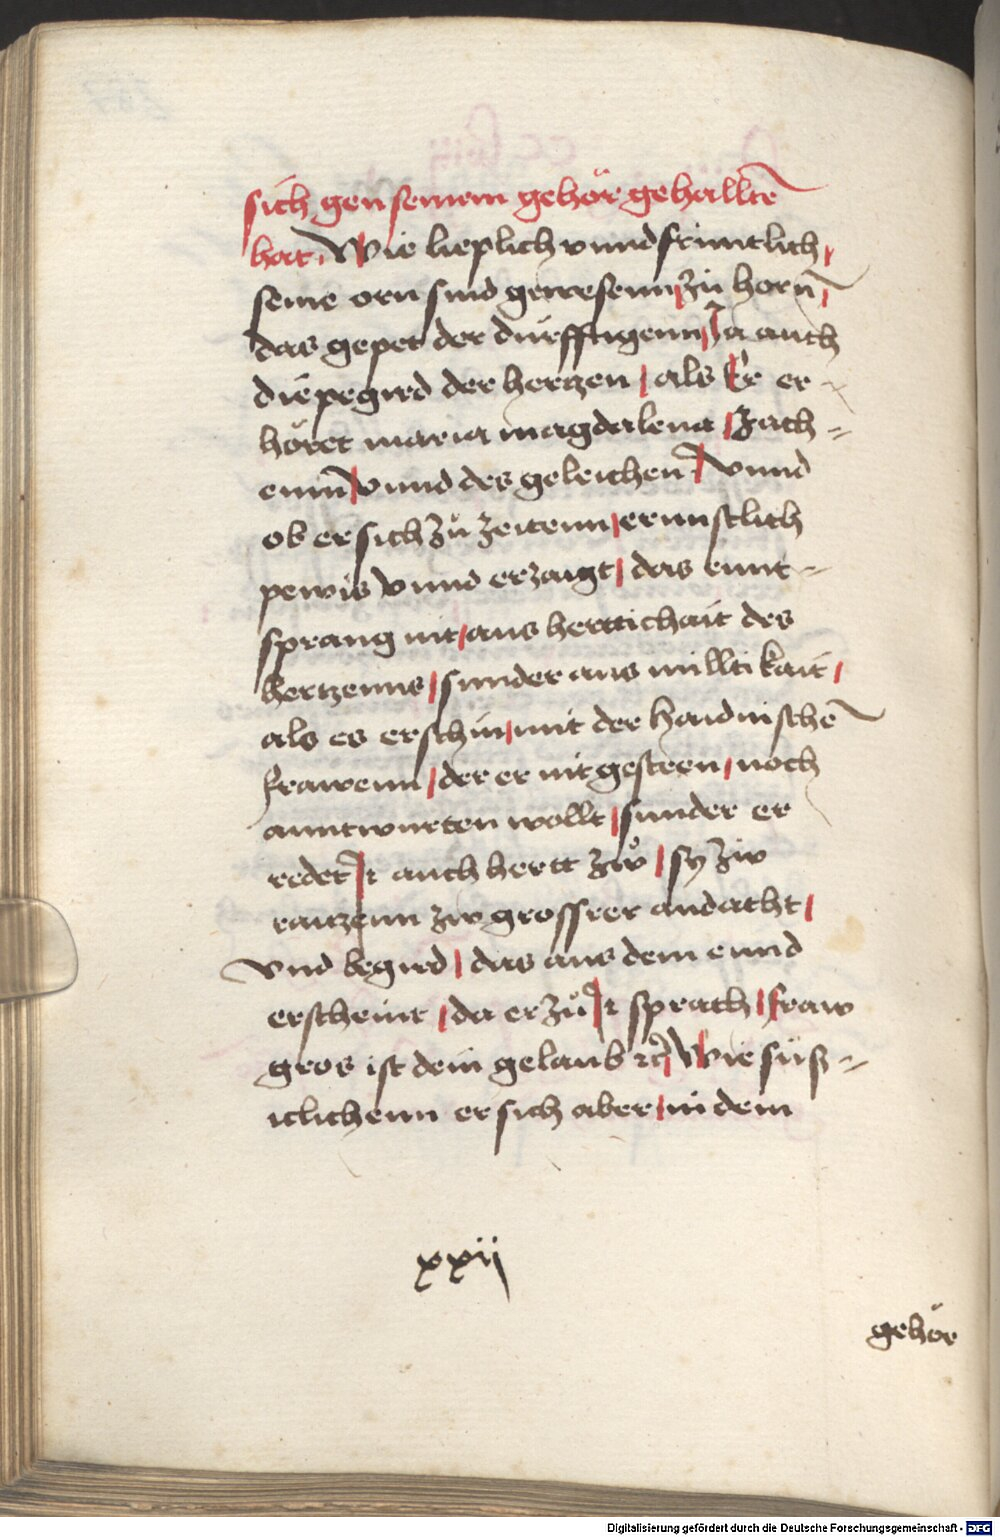 sich gen seinem gehör gehalltē
hat. Wie lieplich vnnd frünntlich
seine orn sind gewesenn zů hörn̄
das gepet der dürfftigenn Ja auch
die pegird der hertzen als Er er
höret maria magdalena Zach=
eum̄ vnnd des geleichen vnnd
ob er sich zů zeitenn ernnstlich
pewis vnnd erzaigt das ennt=
sprang nit aus herttichait des
hertzenns sunder aus milltikait
als es erschin mit der haidnischē
frawenn der er nit gesteen noch
anntwurten wollt sunder er
redet Ir auch hertt zẘ sy zw
raitzenn zw grossrer andacht
vnd begird das aus dem ennd
erscheint da er zů Ir sprach fraw
gros ist dein gelaub ꝛc̄ Wie süß=
iclichenn er sich aber in dem
xxii
gehör
Digitalisierung gefördert durch die Deutsche Forschungsgemeinschaft - DFG